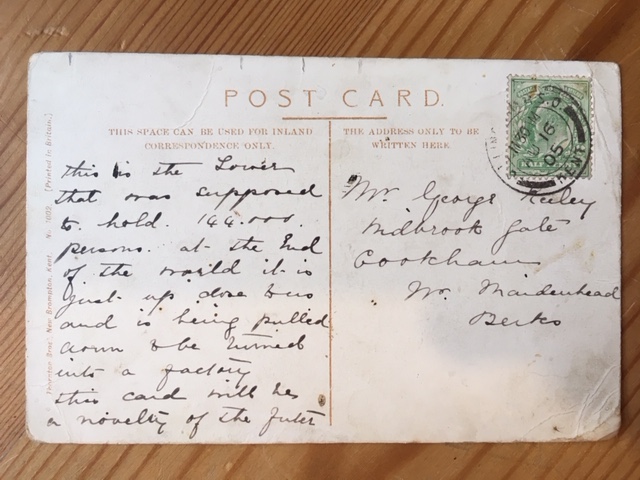 POST CARD.
THIS SPACE CAN BE USED FOR INLAND
CORRESPONDENCE ONLY.
this is the Lower
that was supposed
to hold. 144.000.
persons. at the End
of the world it is
just up close to us
and is being pulled
down to be turned
into a factory
this card will be
a novelty of the futer
THE ADDRESS ONLY TO BE
WRITTEN HERE.
Mr. George Keeley
Midbrook Gate
Cookham
Nr. Maidenhead
Berks
Thornton Bros', New Brompton, Kent. No. 1602. [Printed in Britain.]
16
05
KENT
HALF